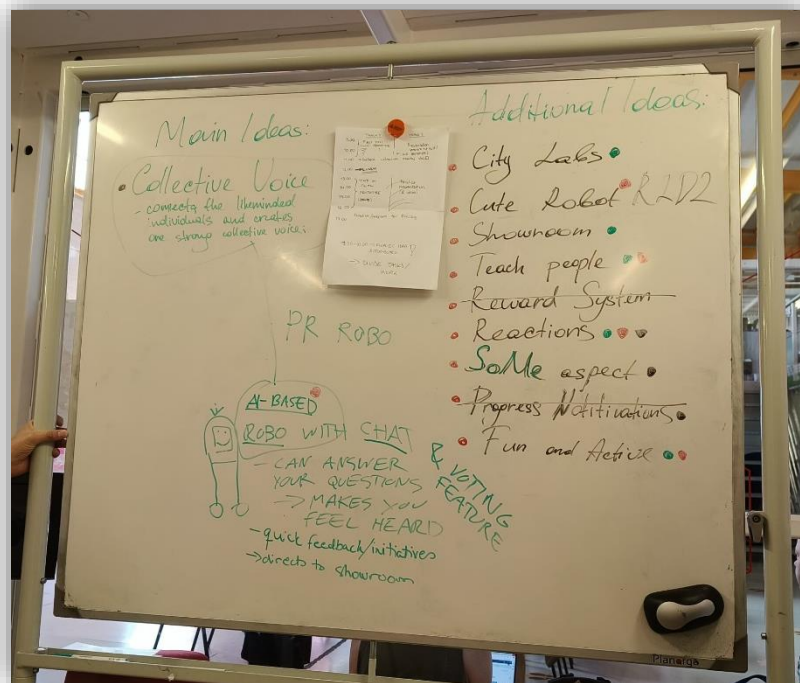 Main Ideas:
• Collective Voice
- connects the likeminded
individuals and creates
one strong collective voice;
PR ROBO
AI-BASED
ROBO WITH CHAT
& VOTING
FEATURE
- CAN ANSWER
YOUR QUESTIONS
-> MAKES YOU
FEEL HEARD
- quick feedback/initiatives
-> directs to showroom
Additional Ideas:
• City Labs
• Cute Robot R2D2
• Showroom
• Teach people
• Reward System
• Reactions
• SoMe aspect
• Progress Notifications
• Fun and Active